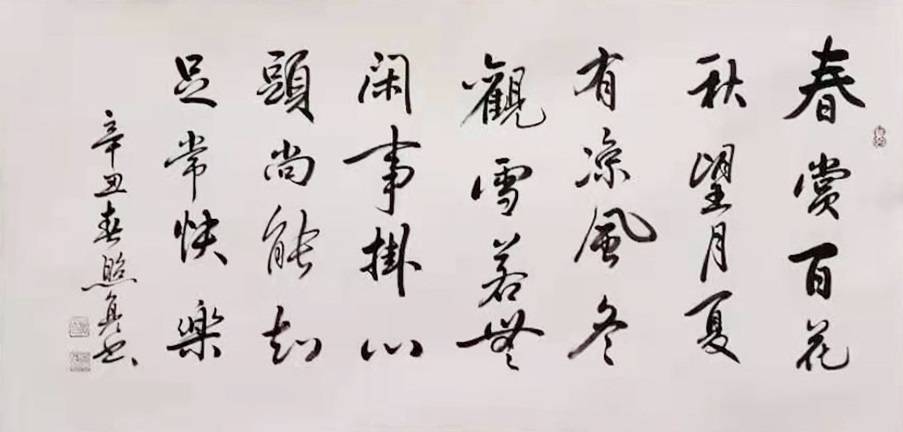 春賞百花
秋望月夏
有涼風冬
觀雪若無
閑事掛心
頭尚能知
足常快樂
辛丑春照兵书